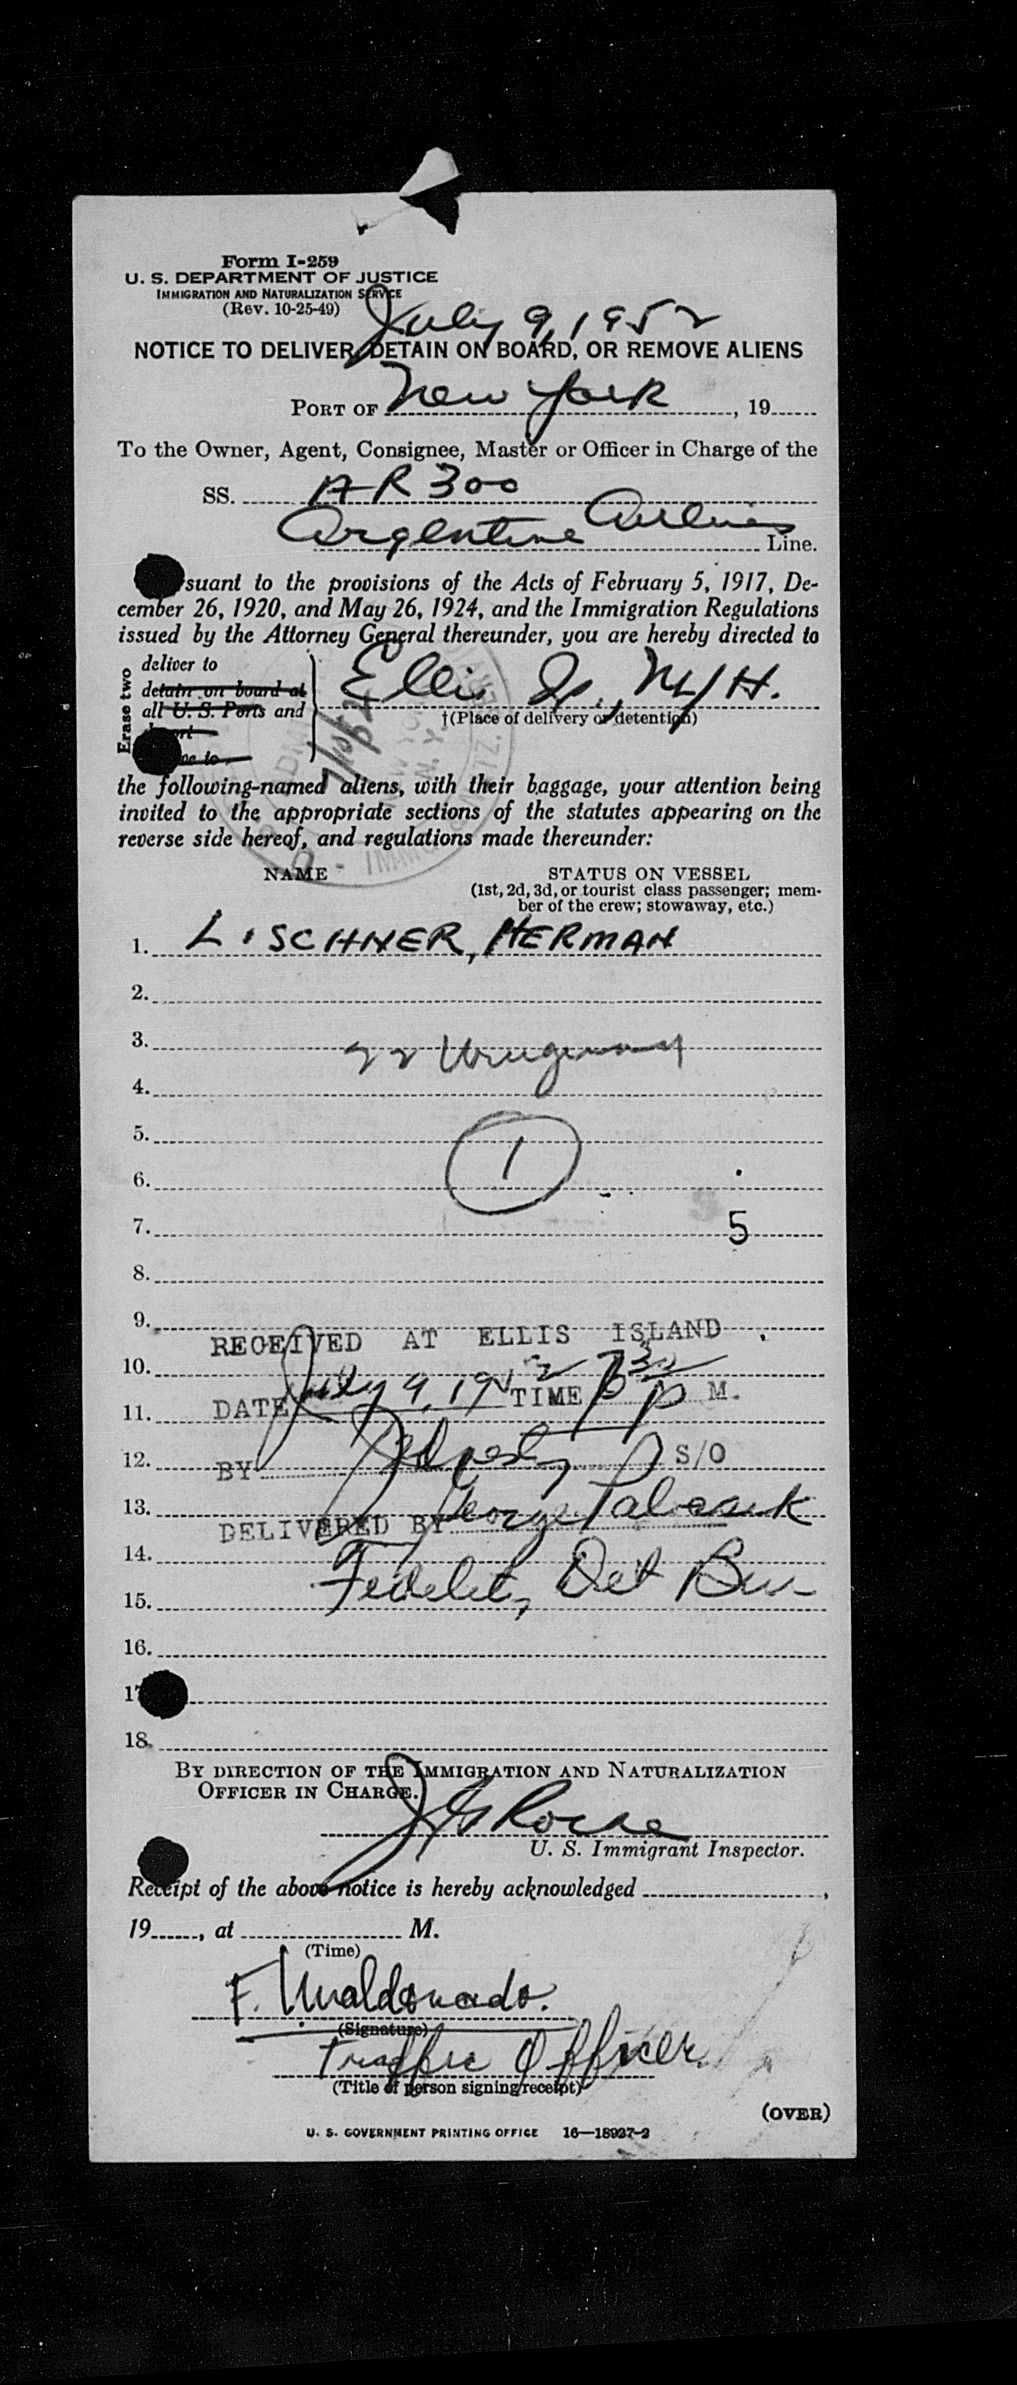 Form I-259
U. S. DEPARTMENT OF JUSTICE
IMMIGRATION AND NATURALIZATION SERVICE
(Rev. 10-25-49)
July 9, 1952
NOTICE TO DELIVER, DETAIN ON BOARD, OR REMOVE ALIENS
PORT OF New York, 19
To the Owner, Agent, Consignee, Master or Officer in Charge of the
SS. AR 300
Argentine Airlines Line.
suant to the provisions of the Acts of February 5, 1917, De-
cember 26, 1920, and May 26, 1924, and the Immigration Regulations
issued by the Attorney General thereunder, you are hereby directed to
Erase two
deliver to
detain on board at
all U. S. Ports and
Ellis Is., NY H.
†(Place of delivery or detention)
the following-named aliens, with their baggage, your attention being
invited to the appropriate sections of the statutes appearing on the
reverse side hereof, and regulations made thereunder:
NAME STATUS ON VESSEL
(1st, 2d, 3d, or tourist class passenger; mem-
ber of the crew; stowaway, etc.)
1. LISCHNER, HERMAN
2.
3. 22 Uruguay
4.
5.
1
6.
7. 5
8.
9.
RECEIVED AT ELLIS ISLAND
10.
DATE July 9, 1952 TIME P M.
11.
12.
BY S/O
13.
DELIVERED BY George
14.
Det
15.
16.
17
18.
BY DIRECTION OF THE IMMIGRATION AND NATURALIZATION
OFFICER IN CHARGE.
U. S. Immigrant Inspector.
Receipt of the above notice is hereby acknowledged ,
19 , at M.
(Time)
F. Maldonado.
(Signature)
Traffic Officer
(Title of person signing receipt)
(OVER)
U. S. GOVERNMENT PRINTING OFFICE 16—18927-2